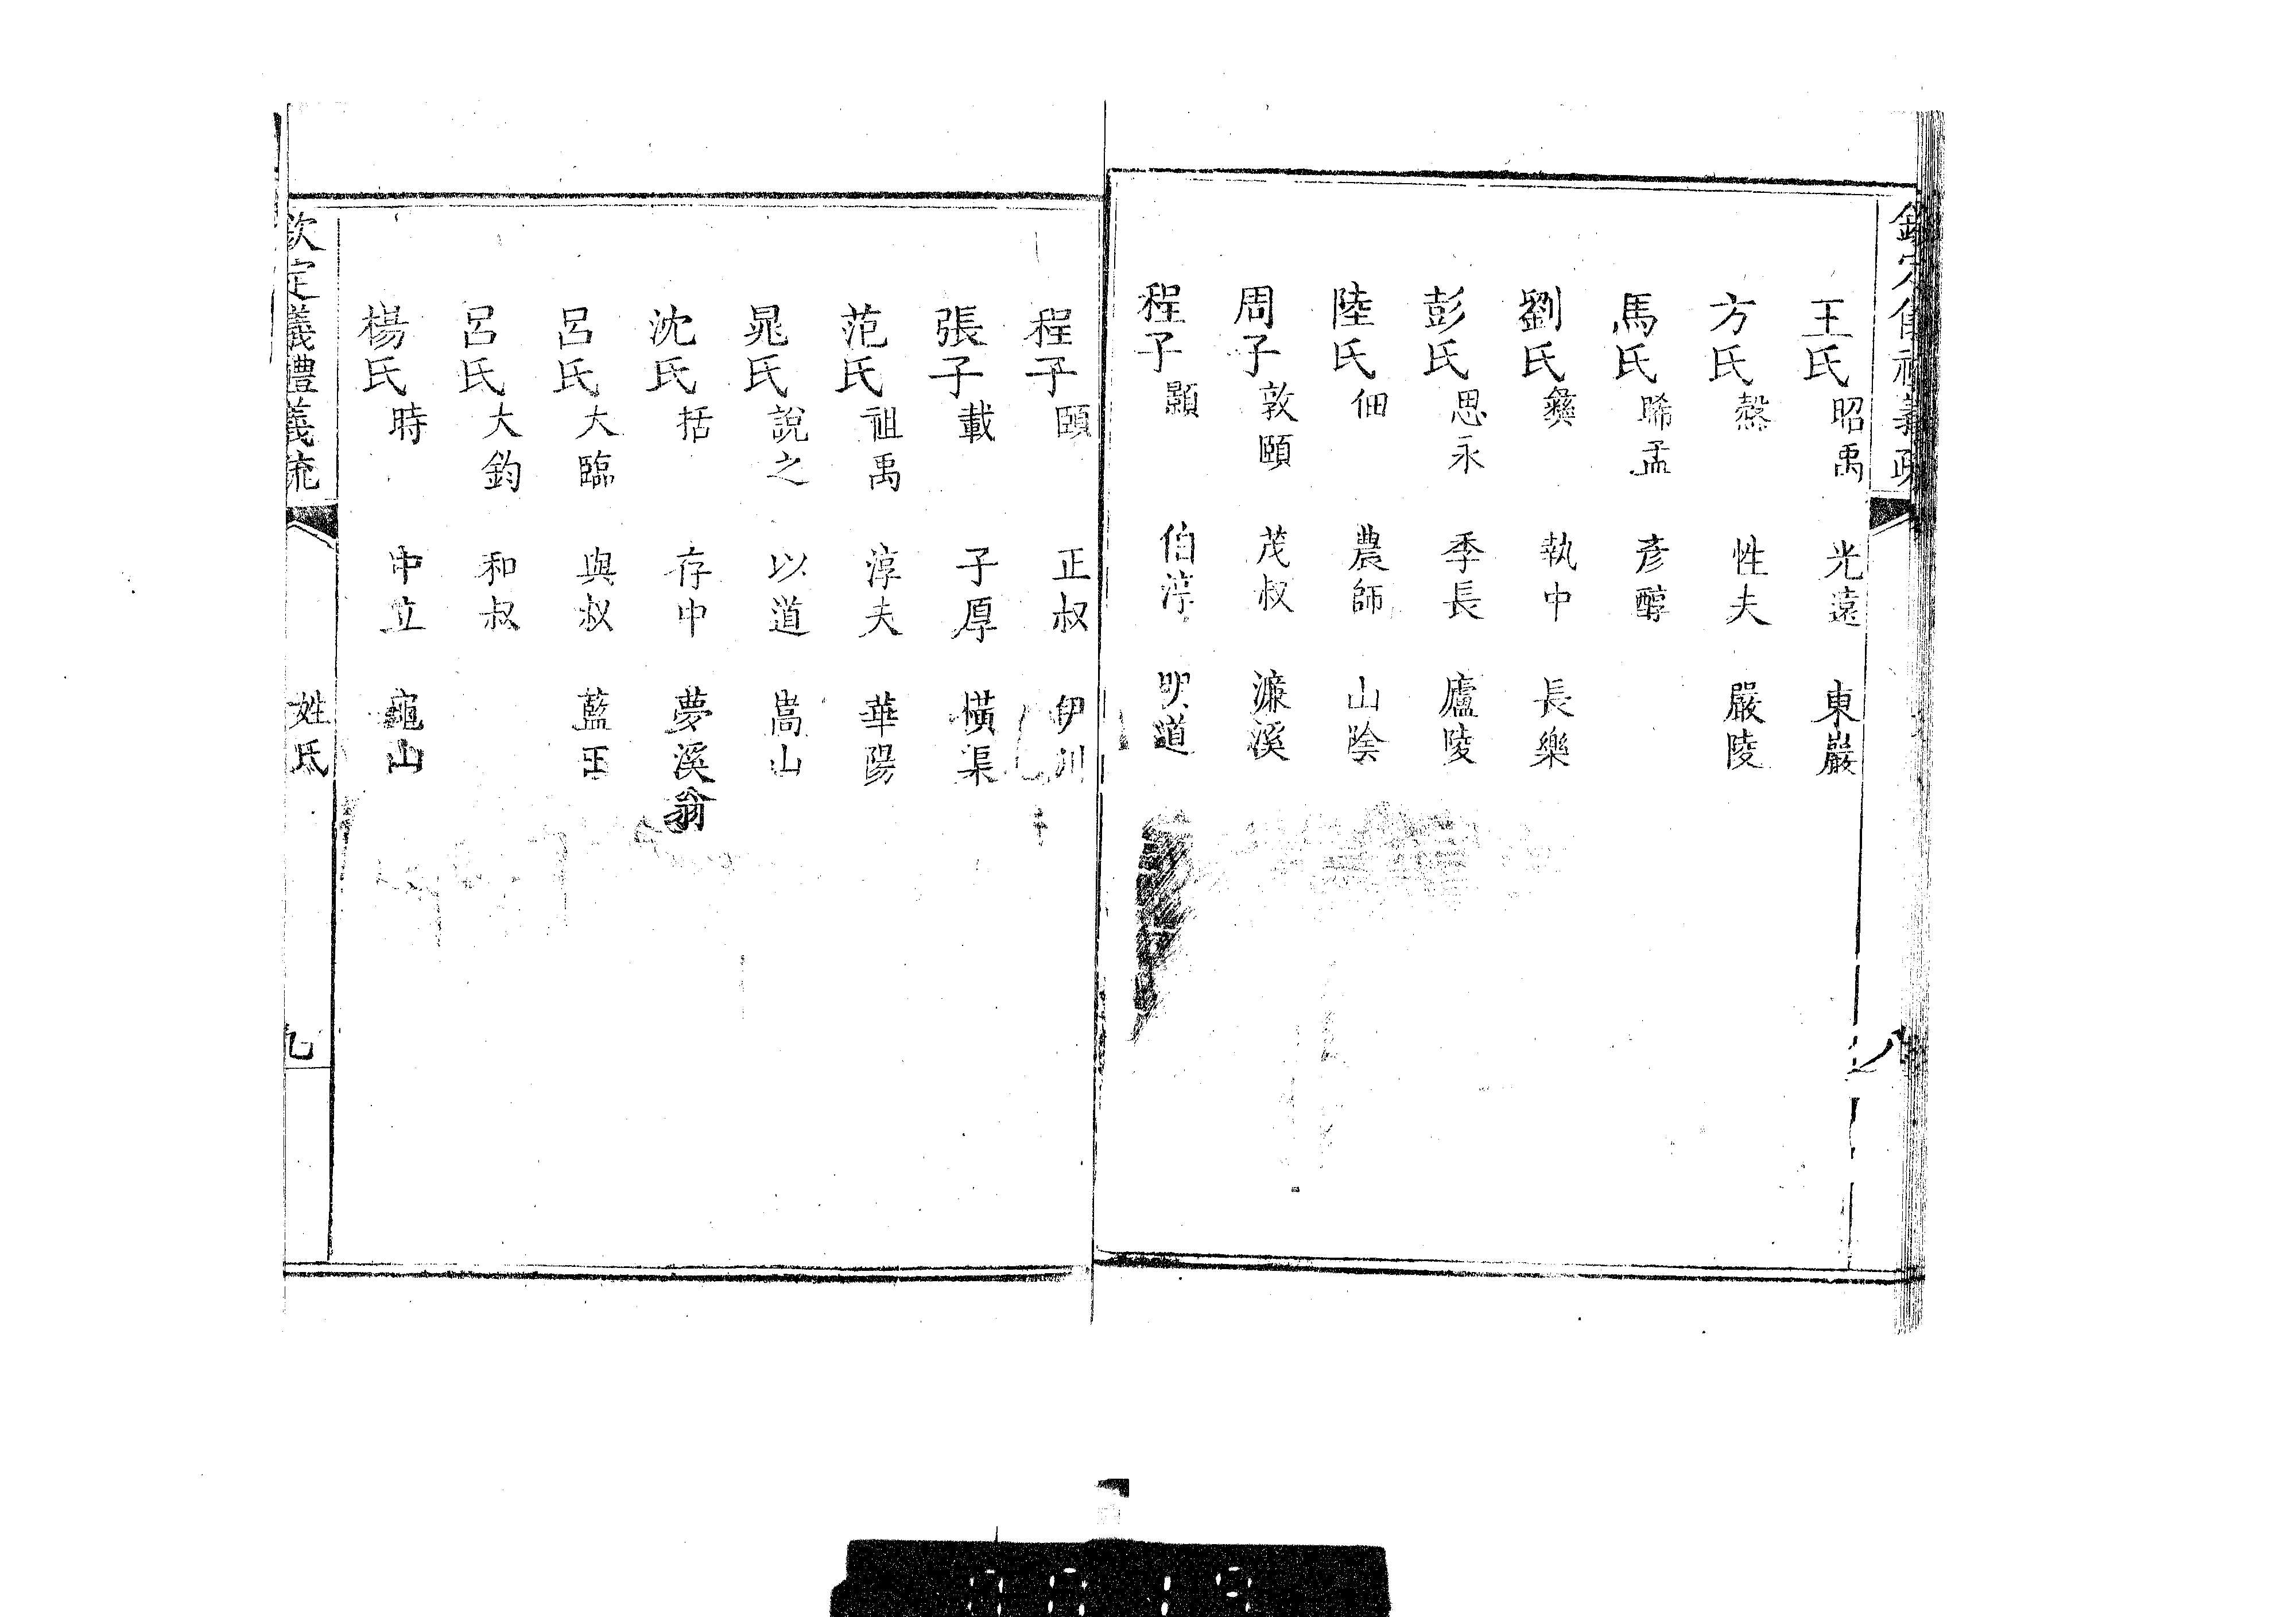 欽定儀禮義疏
八
王氏 昭禹 光遠 東巖
方氏 慤 性夫 嚴陵
馬氏 晞孟 彥醇
劉氏 彝 執中 長樂
彭氏 思永 季長 廬陵
陸氏 佃 農師 山陰
周子 敦頤 茂叔 濂溪
程子 顥 伯淳 明道
程子 頤 正叔 伊川
張子 載 子厚 橫渠
范氏 祖禹 淳夫 華陽
晁氏 說之 以道 嵩山
沈氏 括 存中 夢溪翁
呂氏 大臨 與叔 藍田
呂氏 大鈞 和叔
楊氏 時 中立 龜山
欽定義禮義疏
姓氏
九